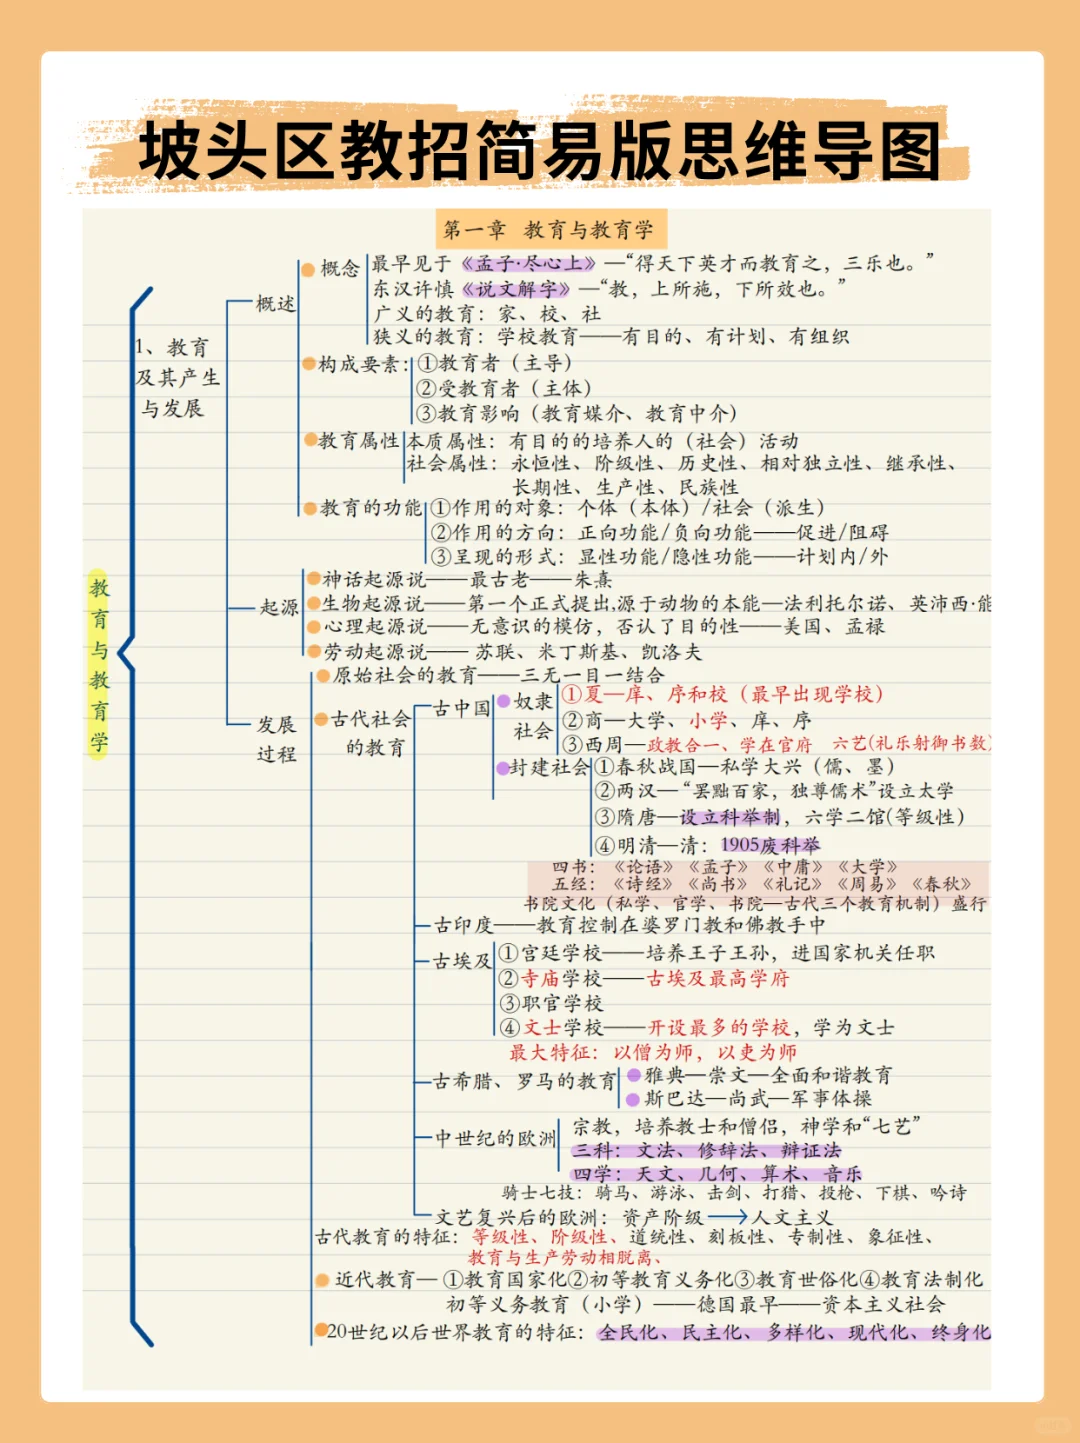 坡头区教招简易版思维导图
第一章 教育与教育学
教育与教育学
1、教育及其产生与发展
概述
概念
最早见于《孟子·尽心上》—“得天下英才而教育之，三乐也。”
东汉许慎《说文解字》—“教，上所施，下所效也。”
广义的教育：家、校、社
狭义的教育：学校教育——有目的、有计划、有组织
构成要素：①教育者（主导）
②受教育者（主体）
③教育影响（教育媒介、教育中介）
教育属性 本质属性：有目的的培养人的（社会）活动
社会属性：永恒性、阶级性、历史性、相对独立性、继承性、
长期性、生产性、民族性
教育的功能 ①作用的对象：个体（本体）/社会（派生）
②作用的方向：正向功能/负向功能——促进/阻碍
③呈现的形式：显性功能/隐性功能——计划内/外
起源
神话起源说——最古老——朱熹
生物起源说——第一个正式提出,源于动物的本能—法利托尔诺、英沛西·能
心理起源说——无意识的模仿，否认了目的性——美国、孟禄
劳动起源说—— 苏联、米丁斯基、凯洛夫
发展过程
原始社会的教育——三无一目一结合
古代社会的教育
古中国
奴隶社会
①夏—庠、序和校（最早出现学校）
②商—大学、小学、庠、序
③西周—政教合一、学在官府 六艺(礼乐射御书数)
封建社会 ①春秋战国—私学大兴（儒、墨）
②两汉—“罢黜百家，独尊儒术”设立太学
③隋唐—设立科举制，六学二馆(等级性)
④明清—清：1905废科举
四书：《论语》《孟子》《中庸》《大学》
五经：《诗经》《尚书》《礼记》《周易》《春秋》
书院文化（私学、官学、书院—古代三个教育机制）盛行
古印度——教育控制在婆罗门教和佛教手中
古埃及
①宫廷学校——培养王子王孙，进国家机关任职
②寺庙学校——古埃及最高学府
③职官学校
④文士学校——开设最多的学校，学为文士
最大特征：以僧为师，以吏为师
古希腊、罗马的教育
雅典—崇文—全面和谐教育
斯巴达—尚武—军事体操
中世纪的欧洲
宗教，培养教士和僧侣，神学和“七艺”
三科：文法、修辞法、辩证法
四学：天文、几何、算术、音乐
骑士七技：骑马、游泳、击剑、打猎、投枪、下棋、吟诗
文艺复兴后的欧洲：资产阶级→人文主义
古代教育的特征：等级性、阶级性、道统性、刻板性、专制性、象征性、
教育与生产劳动相脱离、
近代教育— ①教育国家化②初等教育义务化③教育世俗化④教育法制化
初等义务教育（小学）——德国最早——资本主义社会
20世纪以后世界教育的特征：全民化、民主化、多样化、现代化、终身化